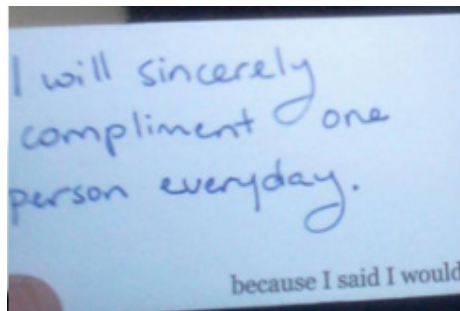 I will sincerely
compliment one
person everyday.
because I said I would